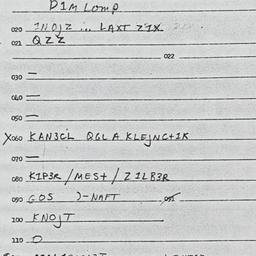 D1M Lomp
020 INOJZ ... LAXT Z7X
021 QZZ
022
030 —
040 —
050 —
X060 KAN3CL QGLA KLEJNC+1K
070 —
080 K1P3R / MES+ / Z1LB3R
090 GOS )-NAFT 091
100 KNOJT
110 O